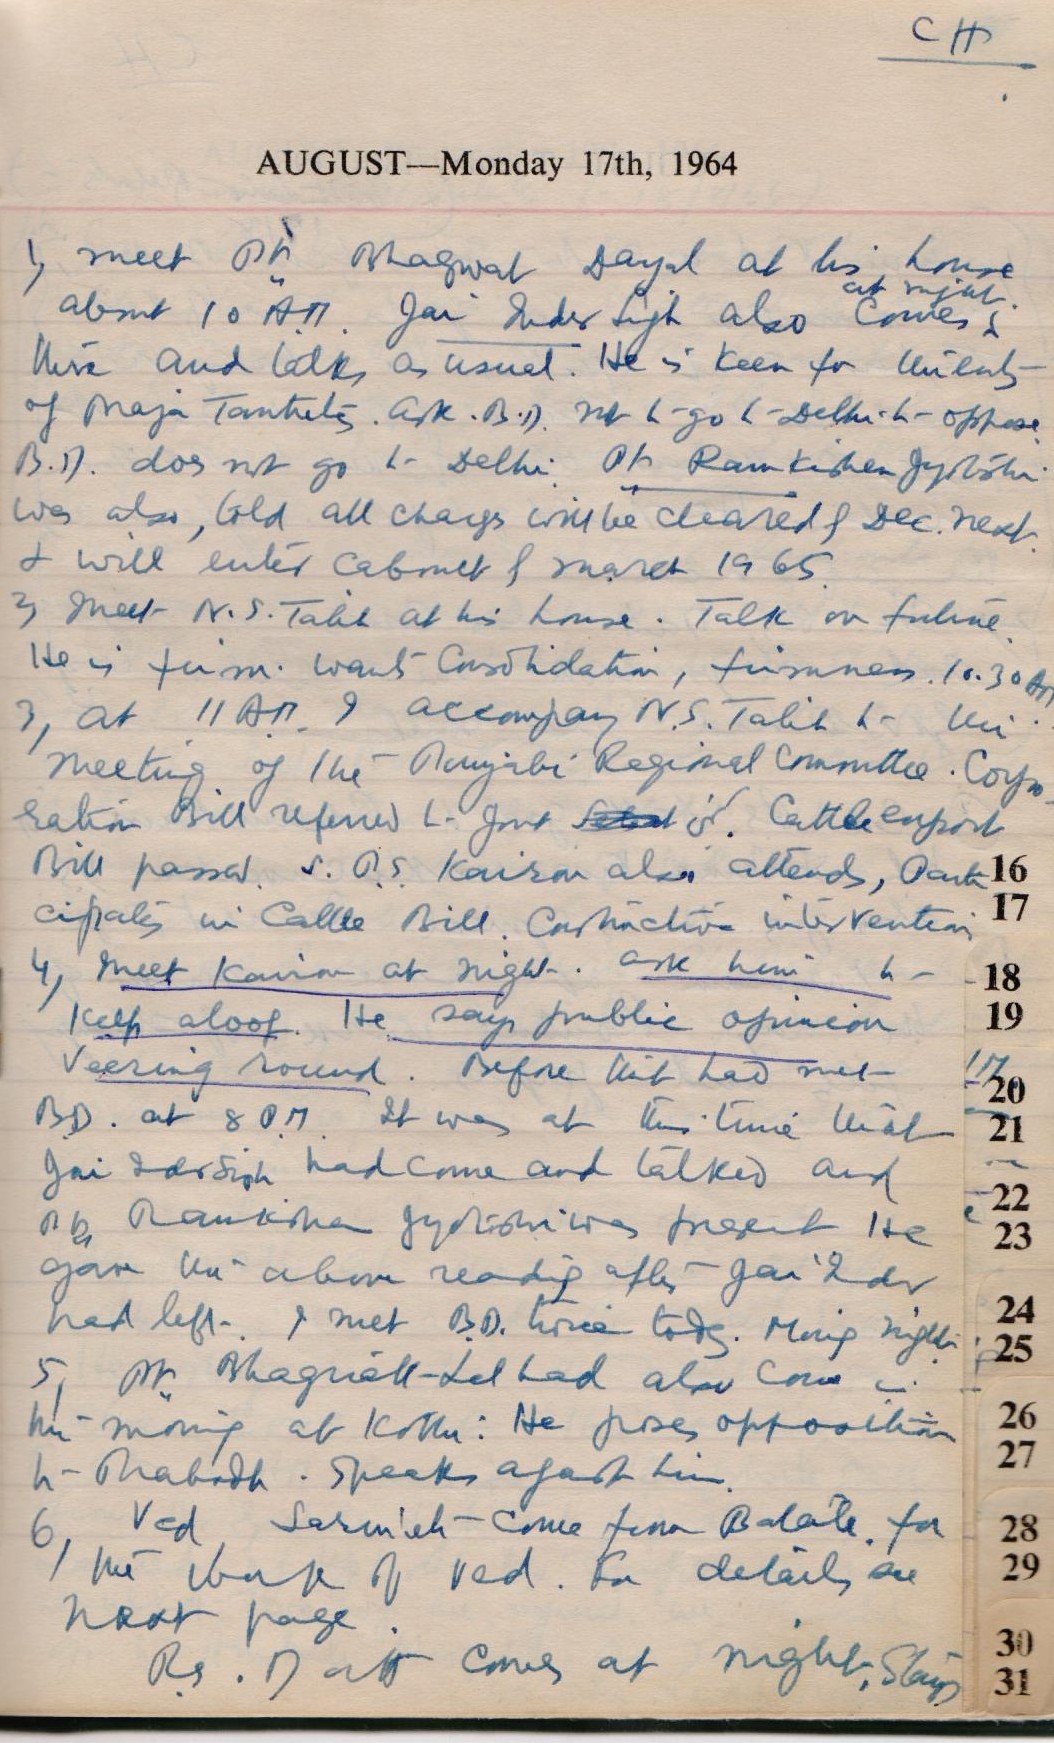 CH
AUGUST—Monday 17th, 1964
1, meet Pt. Bhagwat Dayal at his house
at night.
about 10 A.M. Jai Inder Singh also comes
there and talks as usual. He is keen for
of Praja Tantrites. Ask B.D. not to go to Delhi to oppose.
B.D. does not go to Delhi. Pt. Ram Kishen Jyotishi
was also, told all charges will be cleared by Dec. next.
& will enter cabinet by March 1965.
2, Meet N.S. Talib at his house. Talk on future.
He is firm. wants Consolidation, firmness. 10.30 AM
3, at 11 A.M. I accompany N.S. Talib to the
meeting of the Punjabi Regional Committee. Corpo-
ration Bill referred to Joint Cattle export
Bill passed. S. P.S. Kairon also attends, Parti
16
cipates in Cattle Bill. Constructive intervention
17
4, Meet Kairon at night. ask him to
18
Keep aloof. He says public opinion
19
veering round. Before that had met
20
B.D. at 8 P.M. It was at this time that
21
Jai Inder Singh had come and talked and
22
Pt. Ram Kishen Jyotishi was present He
23
gave the above reading after Jai Inder
24
had left. I met B.D. twice today. Morning night
25
5, Pt. Bhagirath Lal had also come in
26
the morning at Kothi. He poses opposition
27
to Prabodh. Speaks against him.
6, Ved Sarmieh come from Batala. for
28
the work of Ved. For details see
29
next page.
30
Rs. Datt comes at night, Stays
31